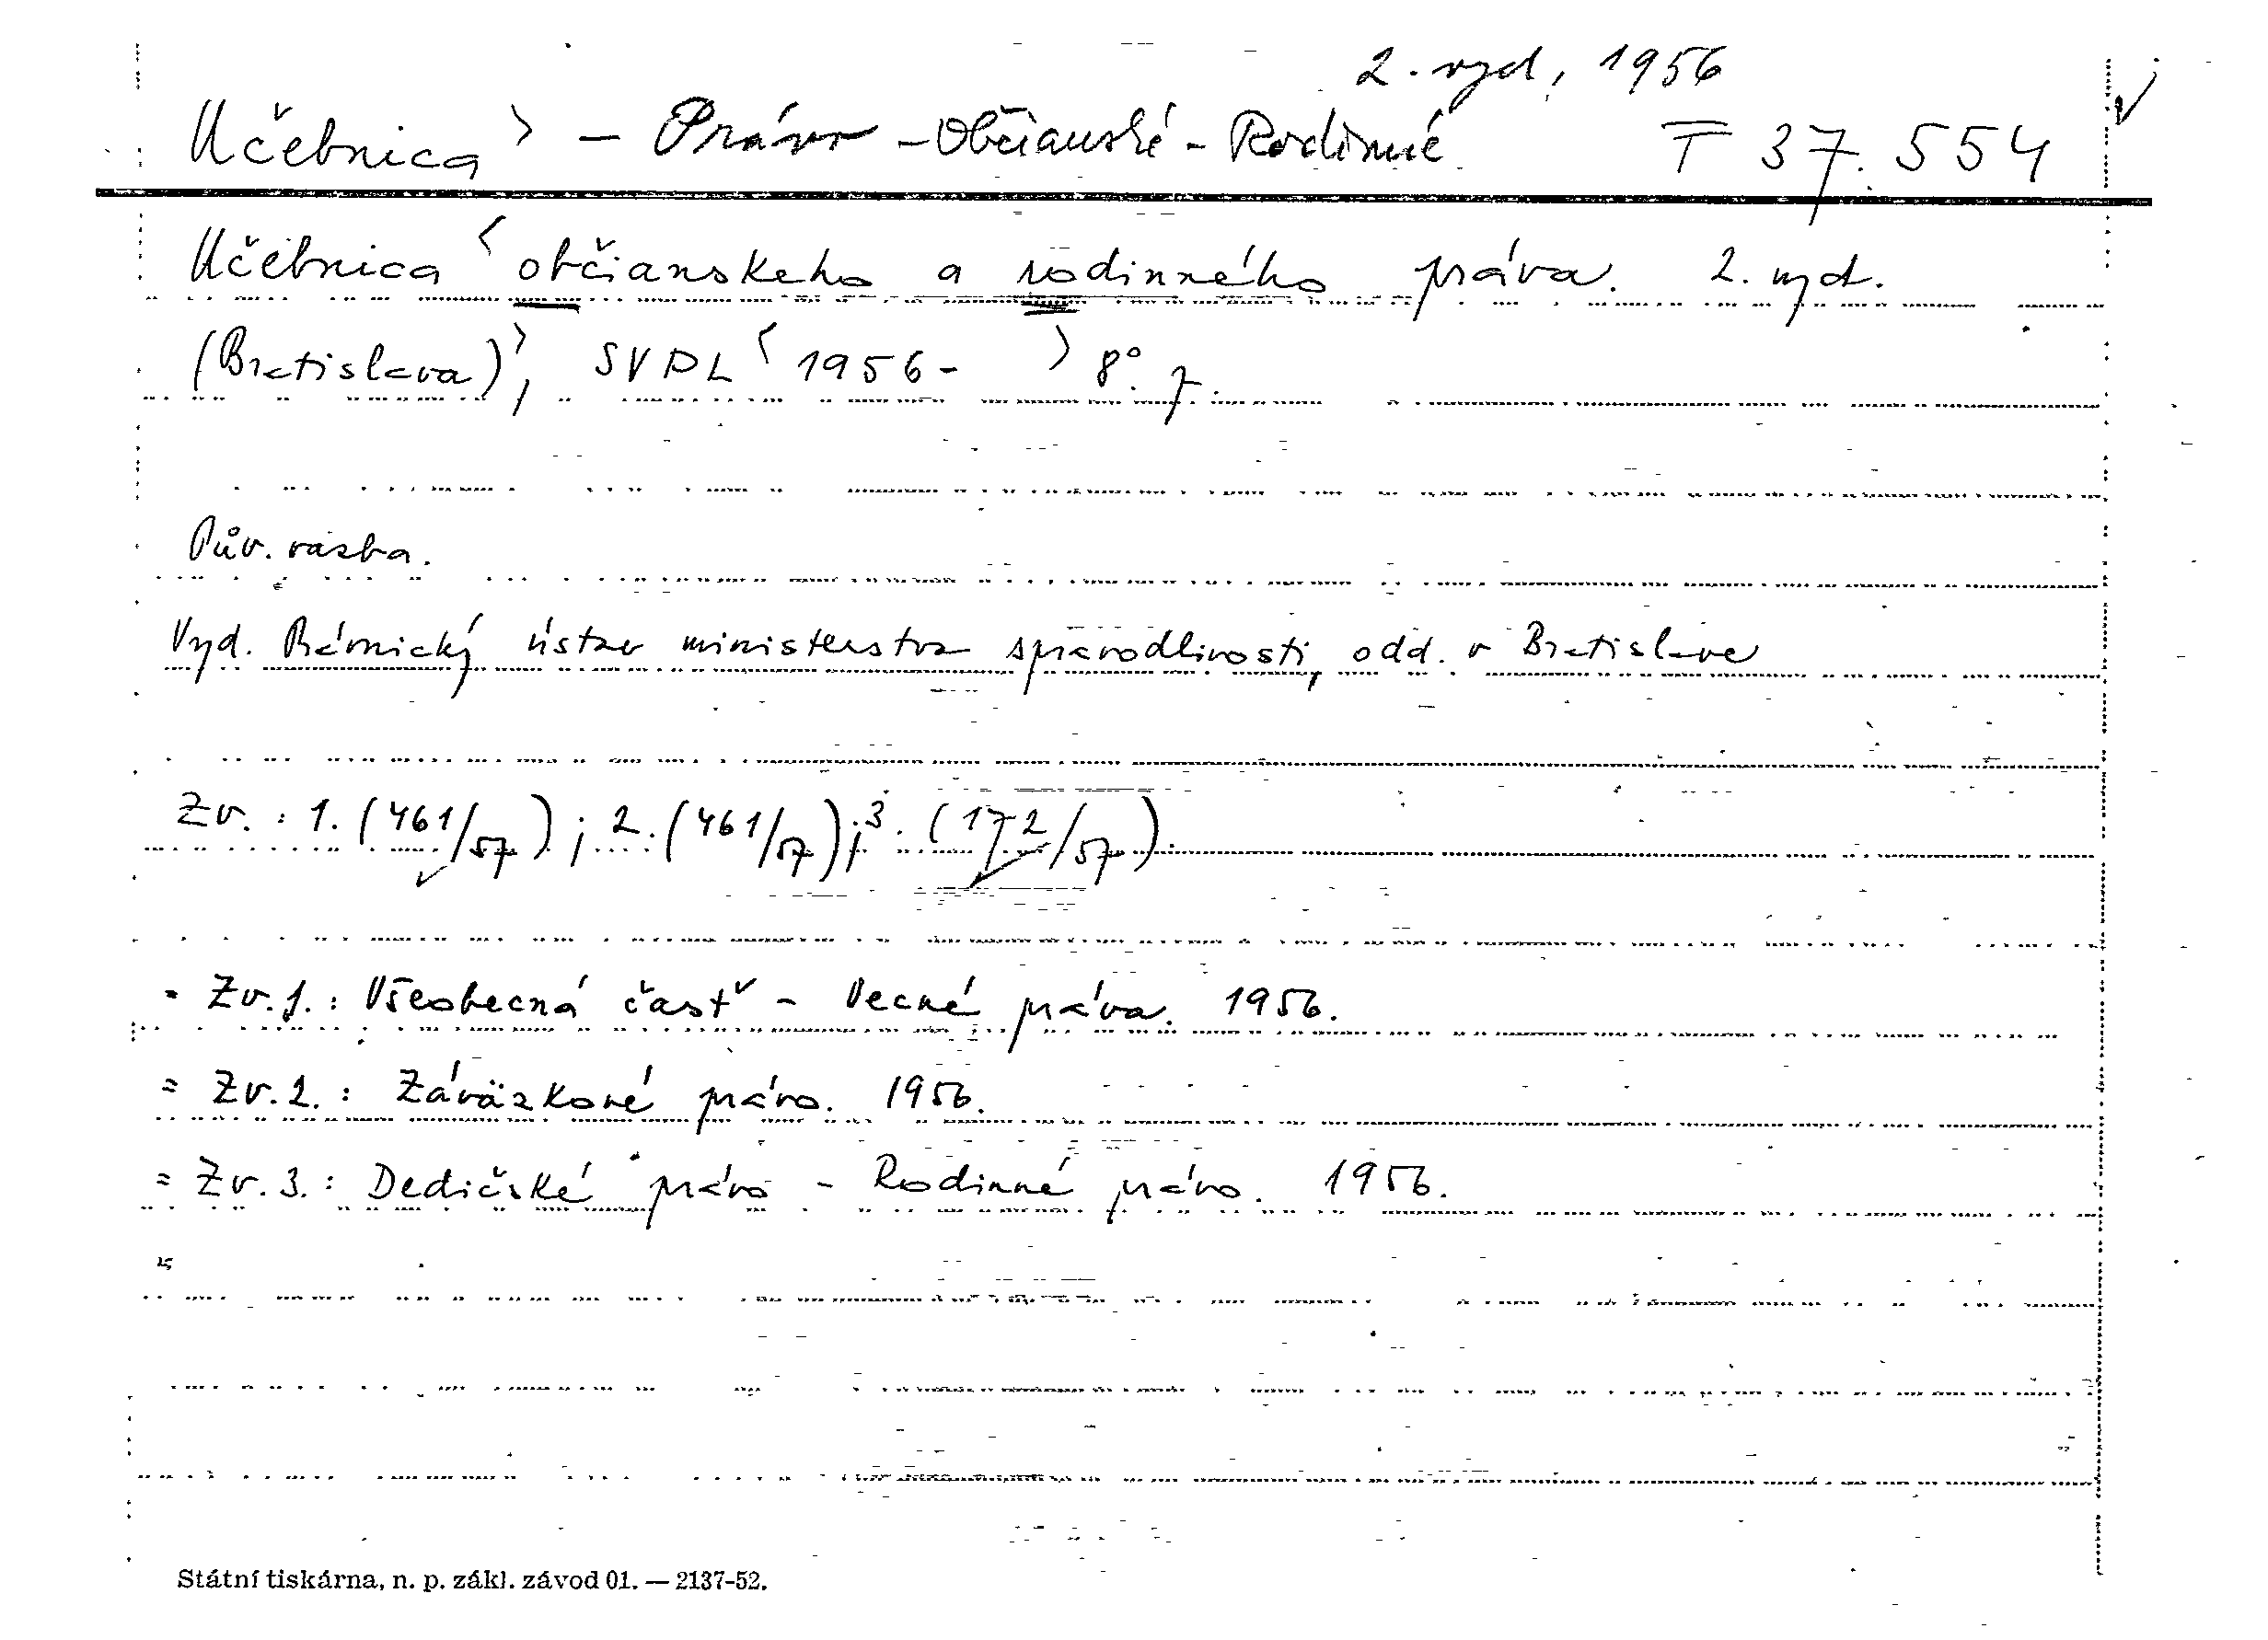 2. vyd, 1956
Učebnica > - Právo - Občianské - Rodinné T 37.554
Učebnica < občianskeho a rodinného práva. 2. vyd.
(Bratislava) >, SVPL < 1956 - > 8°. 7.
Pův. vazba.
Vyd. Právnický ústav ministerstva spravodlivosti, odd. v Bratislave
Zv. : 1. (461/57) ; 2. (461/57) ; 3. (172/57).
= Zv. 1. : Všeobecná časť - Vecné práva. 1956.
= Zv. 2. : Záväzkové právo. 1956.
= Zv. 3. : Dedičské právo - Rodinné právo. 1956.
Státní tiskárna, n. p. zákl. závod 01. — 2137-52.